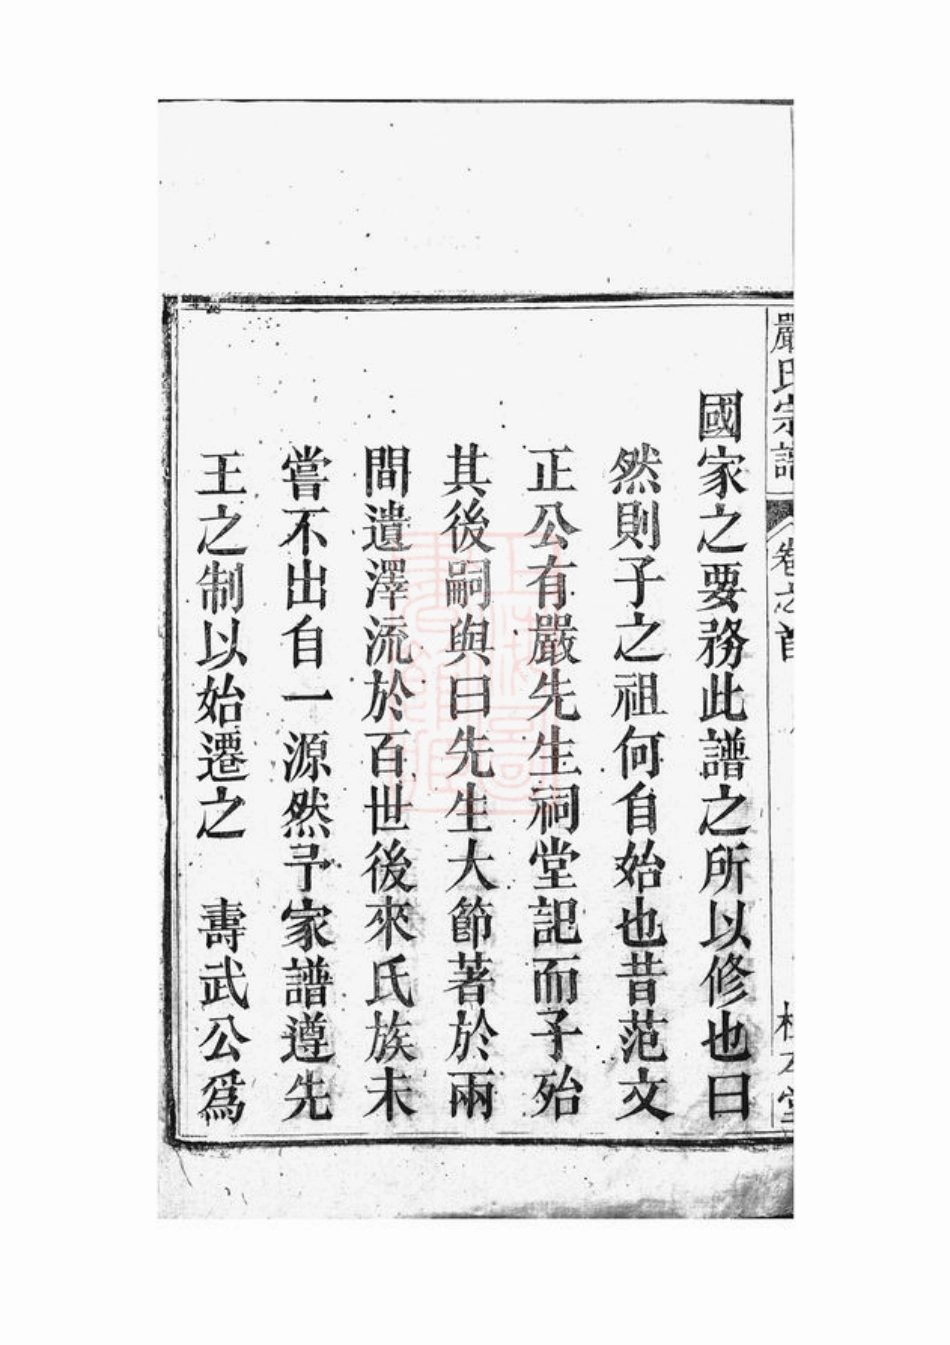 嚴氏宗譜
卷之首
國家之要務此譜之所以修也曰
然則子之祖何自始也昔范文
正公有嚴先生祠堂記而子殆
其後嗣與曰先生大節著於兩
間遺澤流於百世後來氏族未
嘗不出自一源然予家譜遵先
王之制以始遷之　壽武公爲